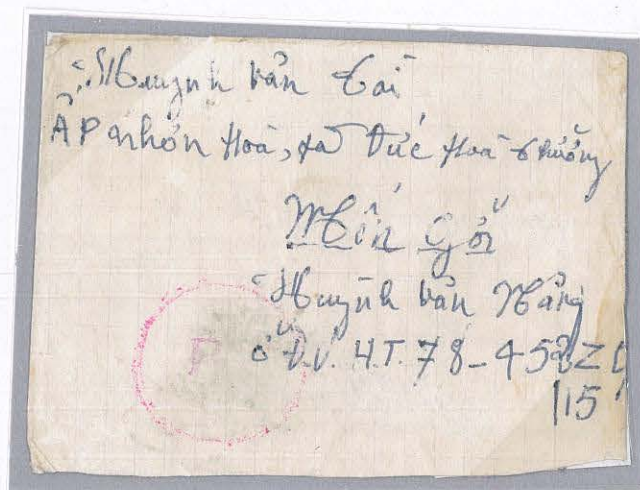 Huỳnh văn Tài
ẤP nhơn Hoà, xã Đức Hoà thưởng
Mến gởi
Huỳnh văn
ở Đ.V. H.T. 78-45
115